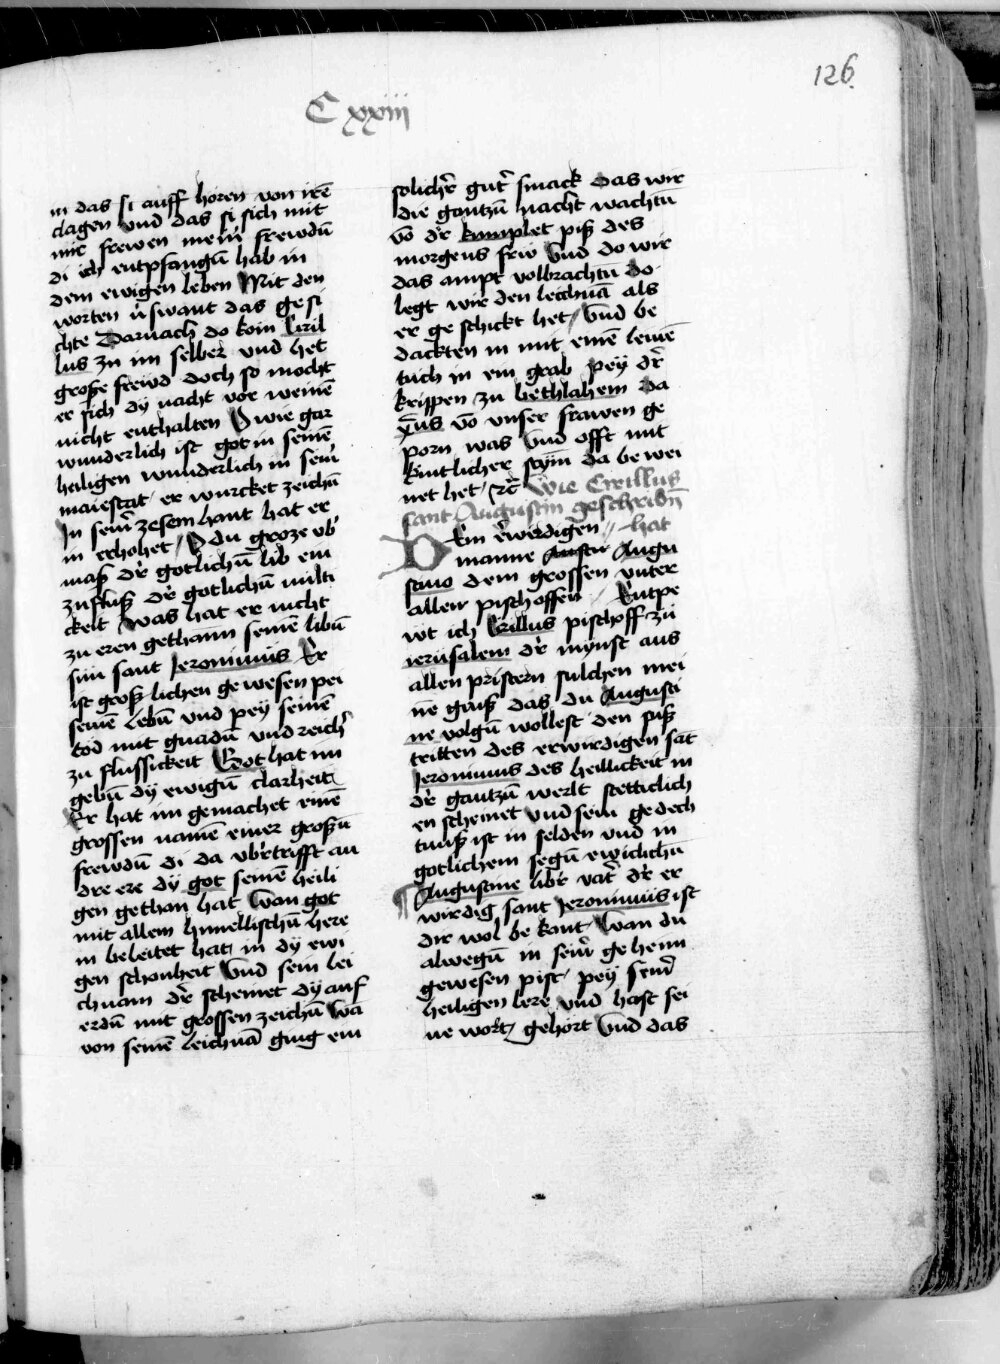 126
C xxiii
in das si auff horen von irē
clagen vnd das si sich mit
mir frewen mein̄ frewdn̄
di ich entpfangn̄ hab in
dem ewigen leben Mit den
worten v̓swant das gesi
chte Darnach do kom Ciril
lus zu im selber vnd het
große frewd doch so mocht
er sich dy nacht vor weinē
nicht enthalten O wie gar
wunderlich ist got in seinē
heiligen wunderlich in sein̓
maiestat er wurcket zeichn̄
In sein̓ zesem hant hat er
in erhohet / O du groze vb̓
maß dr̓ gotlichn̄ lib ein
zufluß dr̓ gotlichn̄ milti
ckeit was hat er nicht
zu eren gethann seinē libn̄
sun sant Jeronimus Er
ist groß lichen gewesen pei
seinē lebn̄ vnd pey seinē
tod mit gnadn̄ vnd reich̓
zu flussickeit Got hat im
gebn̄ dy ewign̄ clarheit
Er hat im gemachet einē
grossen namē einer großn̄
frewdn̄ di da vbr̓trifft an
dre ere dy got seinē heili
gen gethan hat Wan got
mit allem himellischn̄ here
in beleitet hat in dy ewi
gen schonheit Vnd sein lei
chnam dr̓ scheinet dy auf
erdn̄ mit grossen zeichn̄ Wā
von seinē leichnā ging ein
solichr̓ gut̓ smack das wir
die gantzn̄ nacht wachtn̄
vō dr̓ komplet piß des
morgens frw Vnd do wir
das ampt volbrachtn̄ do
legt wir den leichnā als
er geschickt het / Vnd be
dackten in mit einē leinē
tuch in ein grab pey dr̓
krippen zu bethlahem da
xp̄us vō vnser frawen ge
porn was Vnd offt mit
kintlicher stym̄ da bewei
net het / ꝛc̄ Wie Cirillus
sant Augustin geschribn̄
Dem er̓werdigen // hat
manne Augu
stino dem grossen vnter
allen pischoffen / Entpe
wt ich Cirillus pischoff zu
ierusalem dr̓ mynst aus
allen pristern sulchen mei
nē gruß das du Augusti
ne volgn̄ wollest den fuß
tritten des erwirdigen sāt
Jeronimus des heillickeit in
dr̓ gantzn̄ werlt stetticlich
en scheinet vnd sein gedech
tnuß ist in selden vnd in
gotlichem segn̄ ewiclichn̄
¶ Augustine libr̓ vat̓ dr̓ er
wirdig sant Jeronimus ist
dir wol bekant Wan du
alwegn̄ in sein̓ gehenn
gewesen pist / pey sein̓
heiligen lere vnd hast sei
ne wort / gehort Vnd das